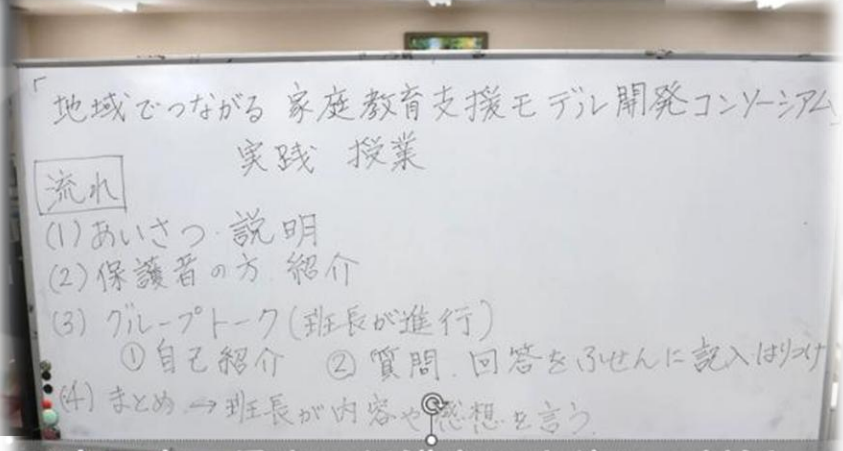 「地域でつながる 家庭教育支援モデル開発コンソーシアム」
実践 授業
流れ
(1) あいさつ・説明
(2) 保護者の方 紹介
(3) グループトーク(班長が進行)
① 自己紹介 ② 質問、回答をふせんに記入はりつけ
(4) まとめ → 班長が内容や感想を言う。